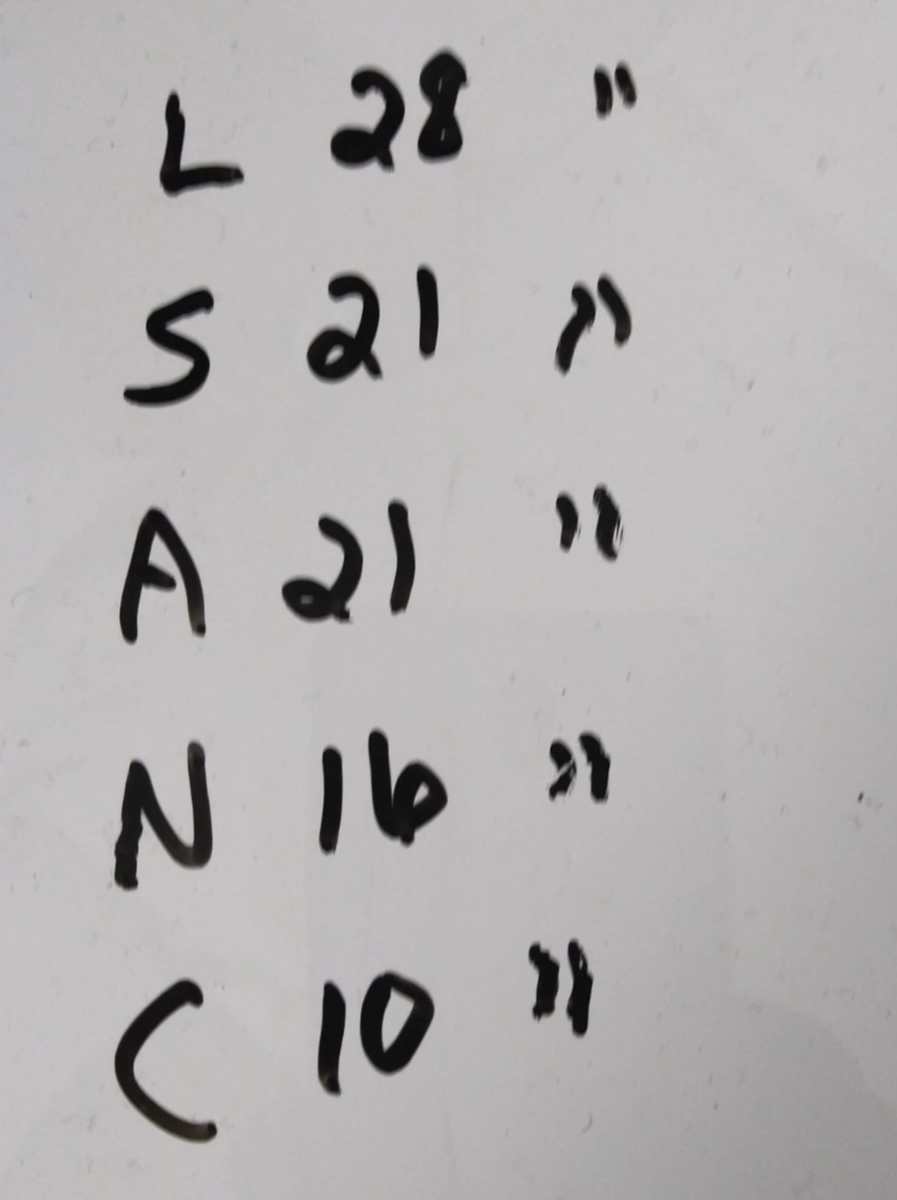 L 28 "
S 21 "
A 21 "
N 16 "
C 10 "